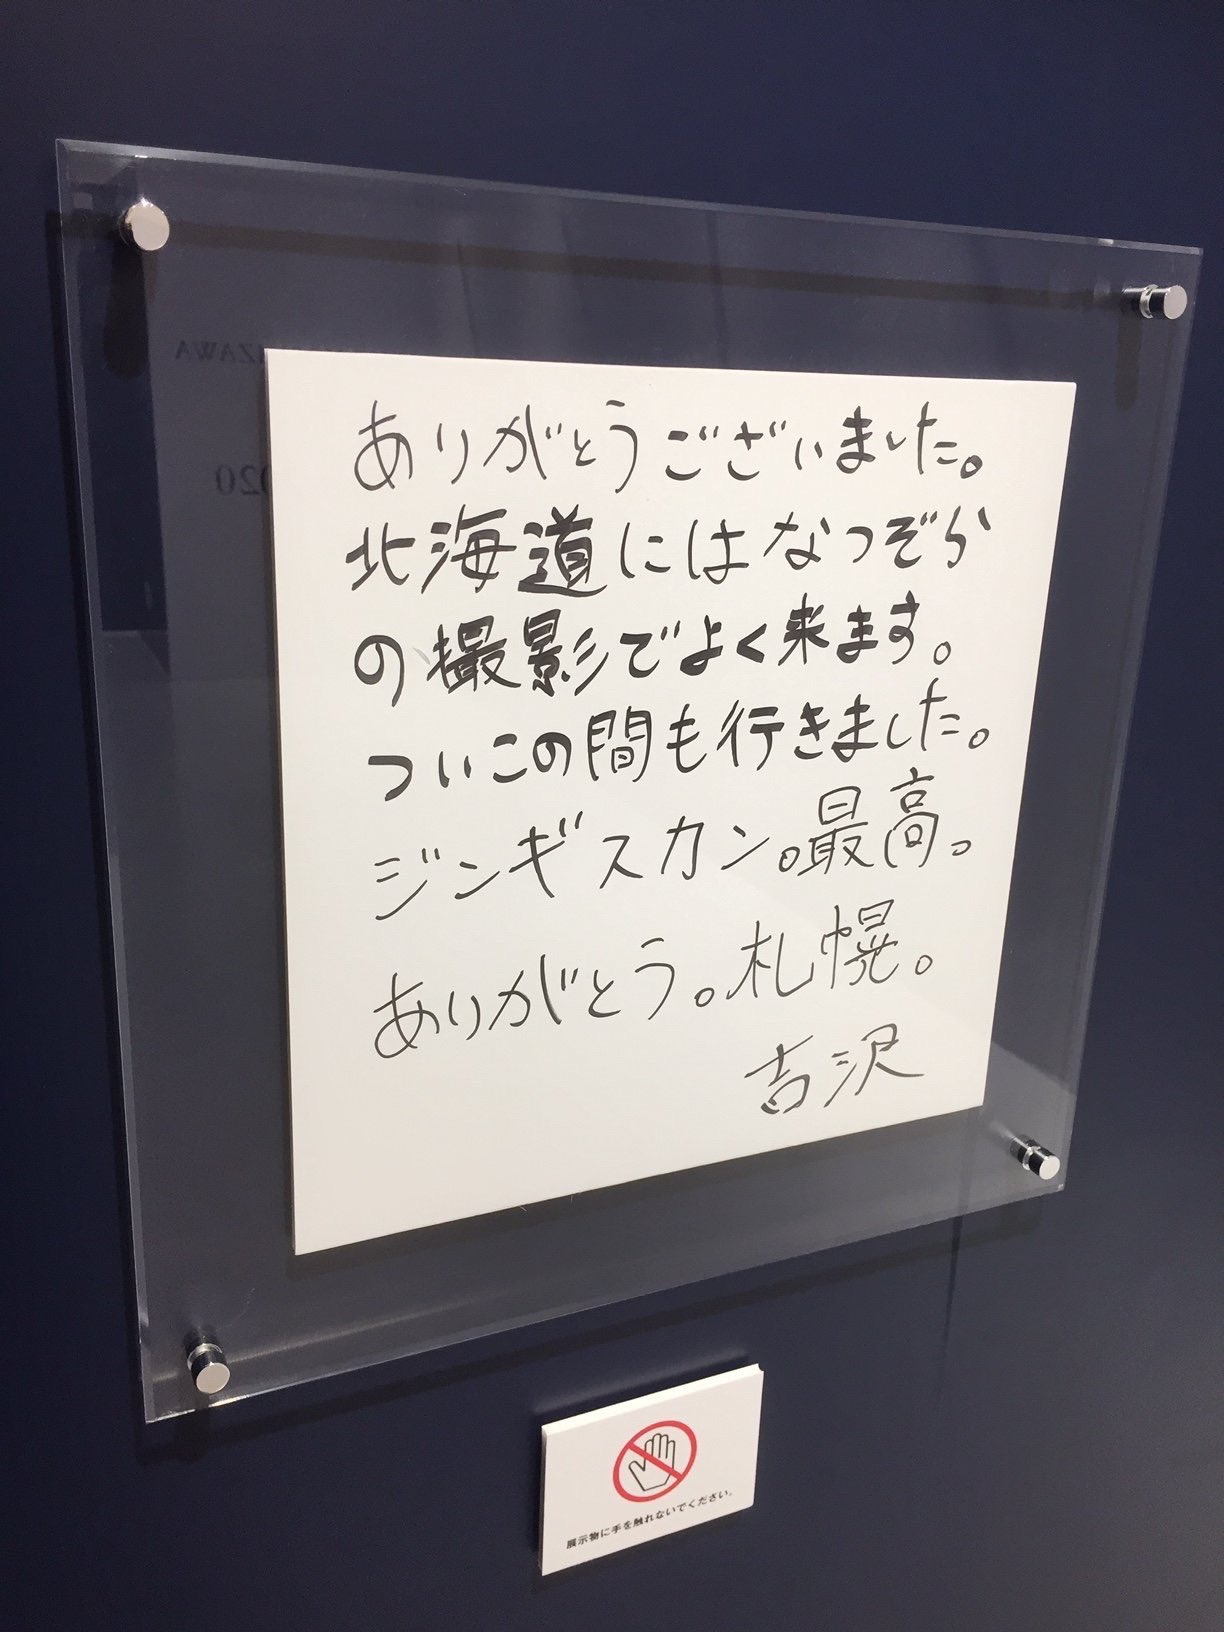 ありがとうございました。
北海道にはなつぞら
の撮影でよく来ます。
ついこの間も行きました。
ジンギスカン。最高。
ありがとう。札幌。
吉沢
展示物に手を触れないでください。